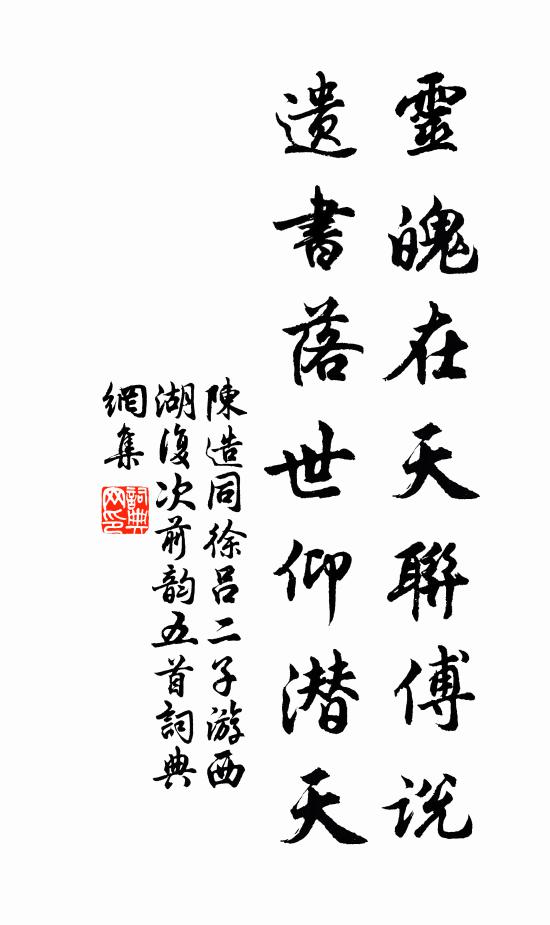 靈魄在天聯傅説
遺書落世仰潜天
陳造同徐呂二子游西
湖復次前韵五首詞典
網集
詞典
网印